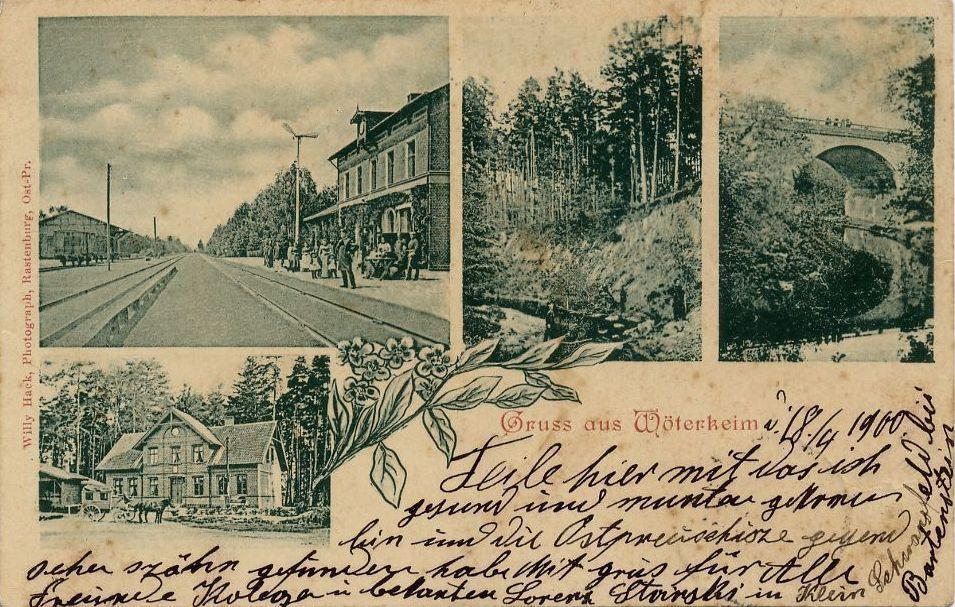 Willy Hack, Photograph, Rastenburg, Ost-Pr.
Gruss aus Wöterkeim
18/4 1900
Teile hier mit das ich
gesund und munter
bin und die Ostpreuschisze gegend
seher szöhn gefunden habe Mit grus für Alle
Freunde Kolegen u bekanten Lorenz in Klein
Schwansfeld bei
Bartenstein